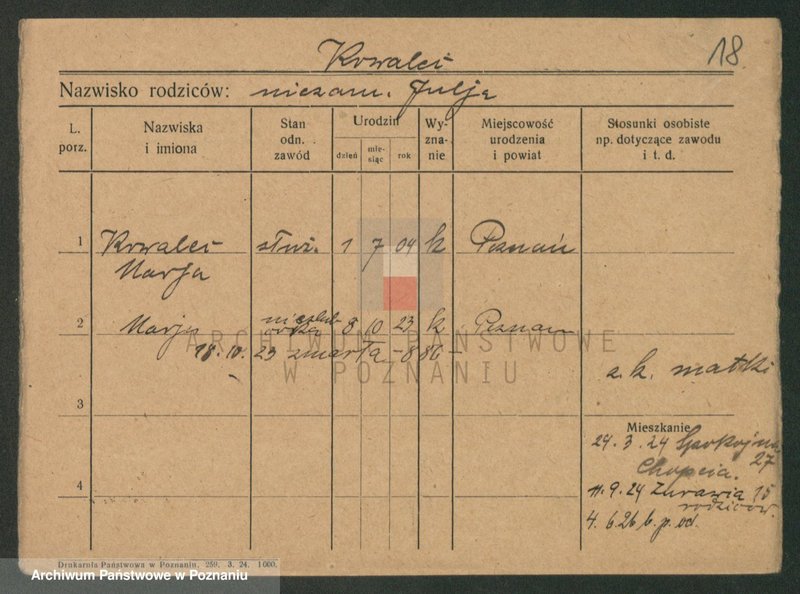 18
Kowalcs
Nazwisko rodziców: niezam. Julja
L. porz.
Nazwiska i imiona
Stan odn. zawód
Urodzin
dzień
miesiąc
rok
Wyznanie
Miejscowość urodzenia i powiat
Stosunki osobiste np. dotyczące zawodu i t. d.
1 Kowalcs służ. 1 7 04 k Poznań
Marja
2 Marja nieślub. córka 8 10 23 k Poznań
18.10.23 zmarła - 886 -
a. k. matki
3
Mieszkanie
29.3.24 Spokojna 27
4
11.9.24 Żurawia 15
rodziców.
4.6.26 b. p. od.
ARCHIWUM PAŃSTWOWE
W POZNANIU
Drukarnia Państwowa w Poznaniu, 259. 3. 24. 1000.
Archiwum Państwowe w Poznaniu